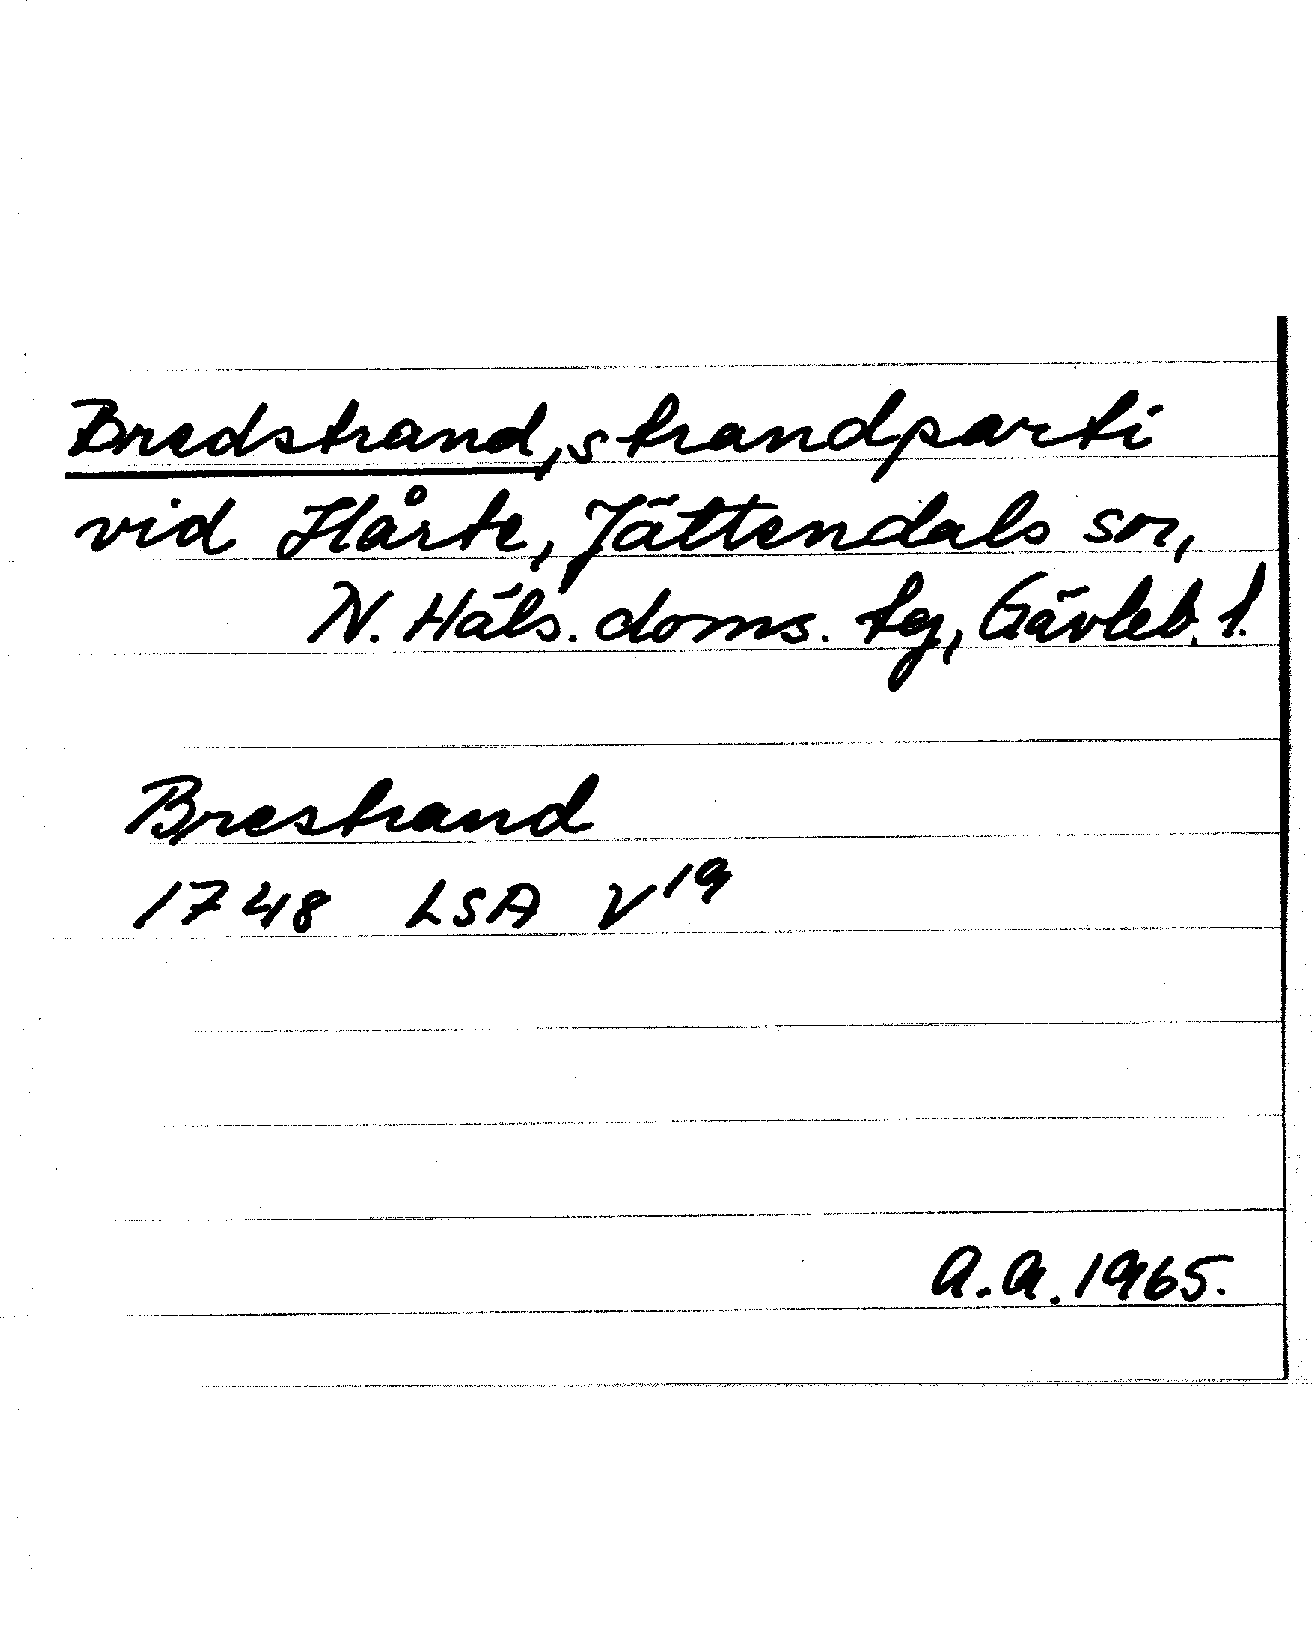 Bredstrand, strandparti
vid Hårte, Jättendals sn,
N. Häls. doms. tg, Gävleb. l.
Brestrand
1748 LSA V¹⁹
A.A. 1965.